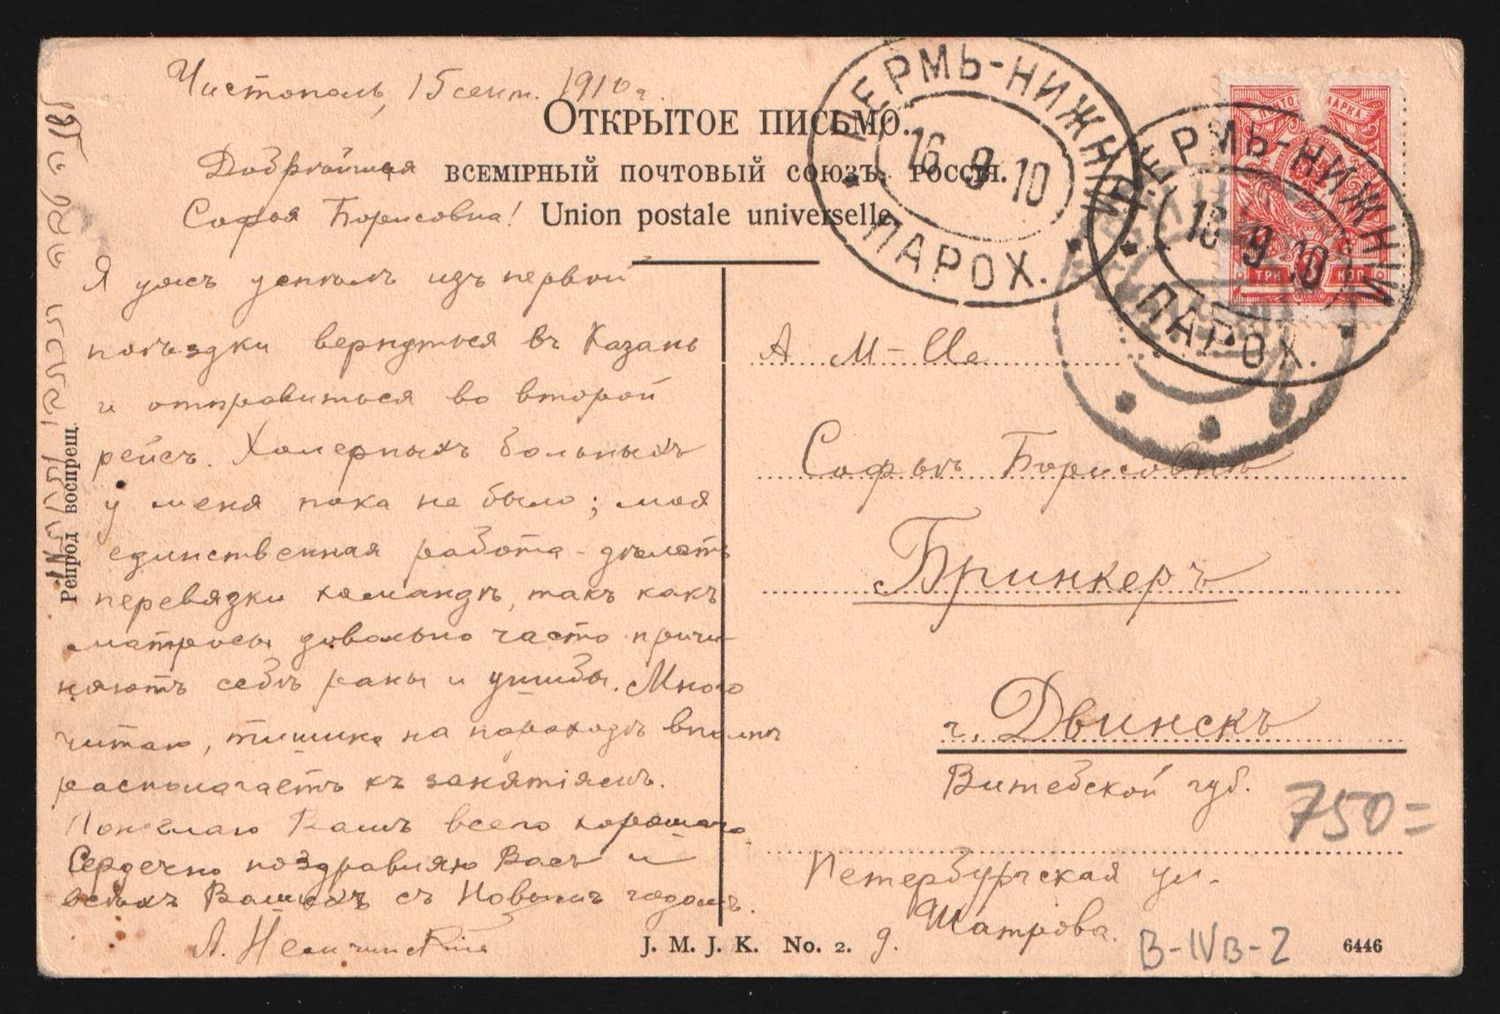 Чистополь, 15 сент. 1910 г.
ОТКРЫТОЕ ПИСЬМО.
ВСЕМІРНЫЙ ПОЧТОВЫЙ СОЮЗЪ. РОССІЯ.
Union postale universelle
Добрѣйшая
Софья Борисовна!
Я уже успѣлъ изъ первой
поѣздки вернуться въ Казань
и отправиться во второй
рейсъ. Холерныхъ больныхъ
у меня пока не было; моя
единственная работа - дѣлать
перевязки командѣ, такъ какъ
матросы довольно часто причи-
няютъ себѣ раны и ушибы. Много
читаю, тишина на пароходѣ вполнѣ
располагаетъ къ занятіямъ.
Пожелаю Вамъ всего хорошаго.
Сердечно поздравляю Васъ и
всѣхъ Вашихъ съ Новымъ годомъ.
Л. Немчинскій
Репрод воспрещ.
J. M. J. K. No. 2.
6446
ПЕРМЬ-НИЖНІЙ
16 9 10
ПАРОХ.
ПЕРМЬ-НИЖНІЙ
16 9 10
ПАРОХ.
МАРКА
ТРИ КОП
А M-lle
Софьѣ Борисовнѣ
Бринкеръ
г. Двинскъ
Витебской губ.
Петербургская ул.
д. Шатрова.
750=
B-IVB-2